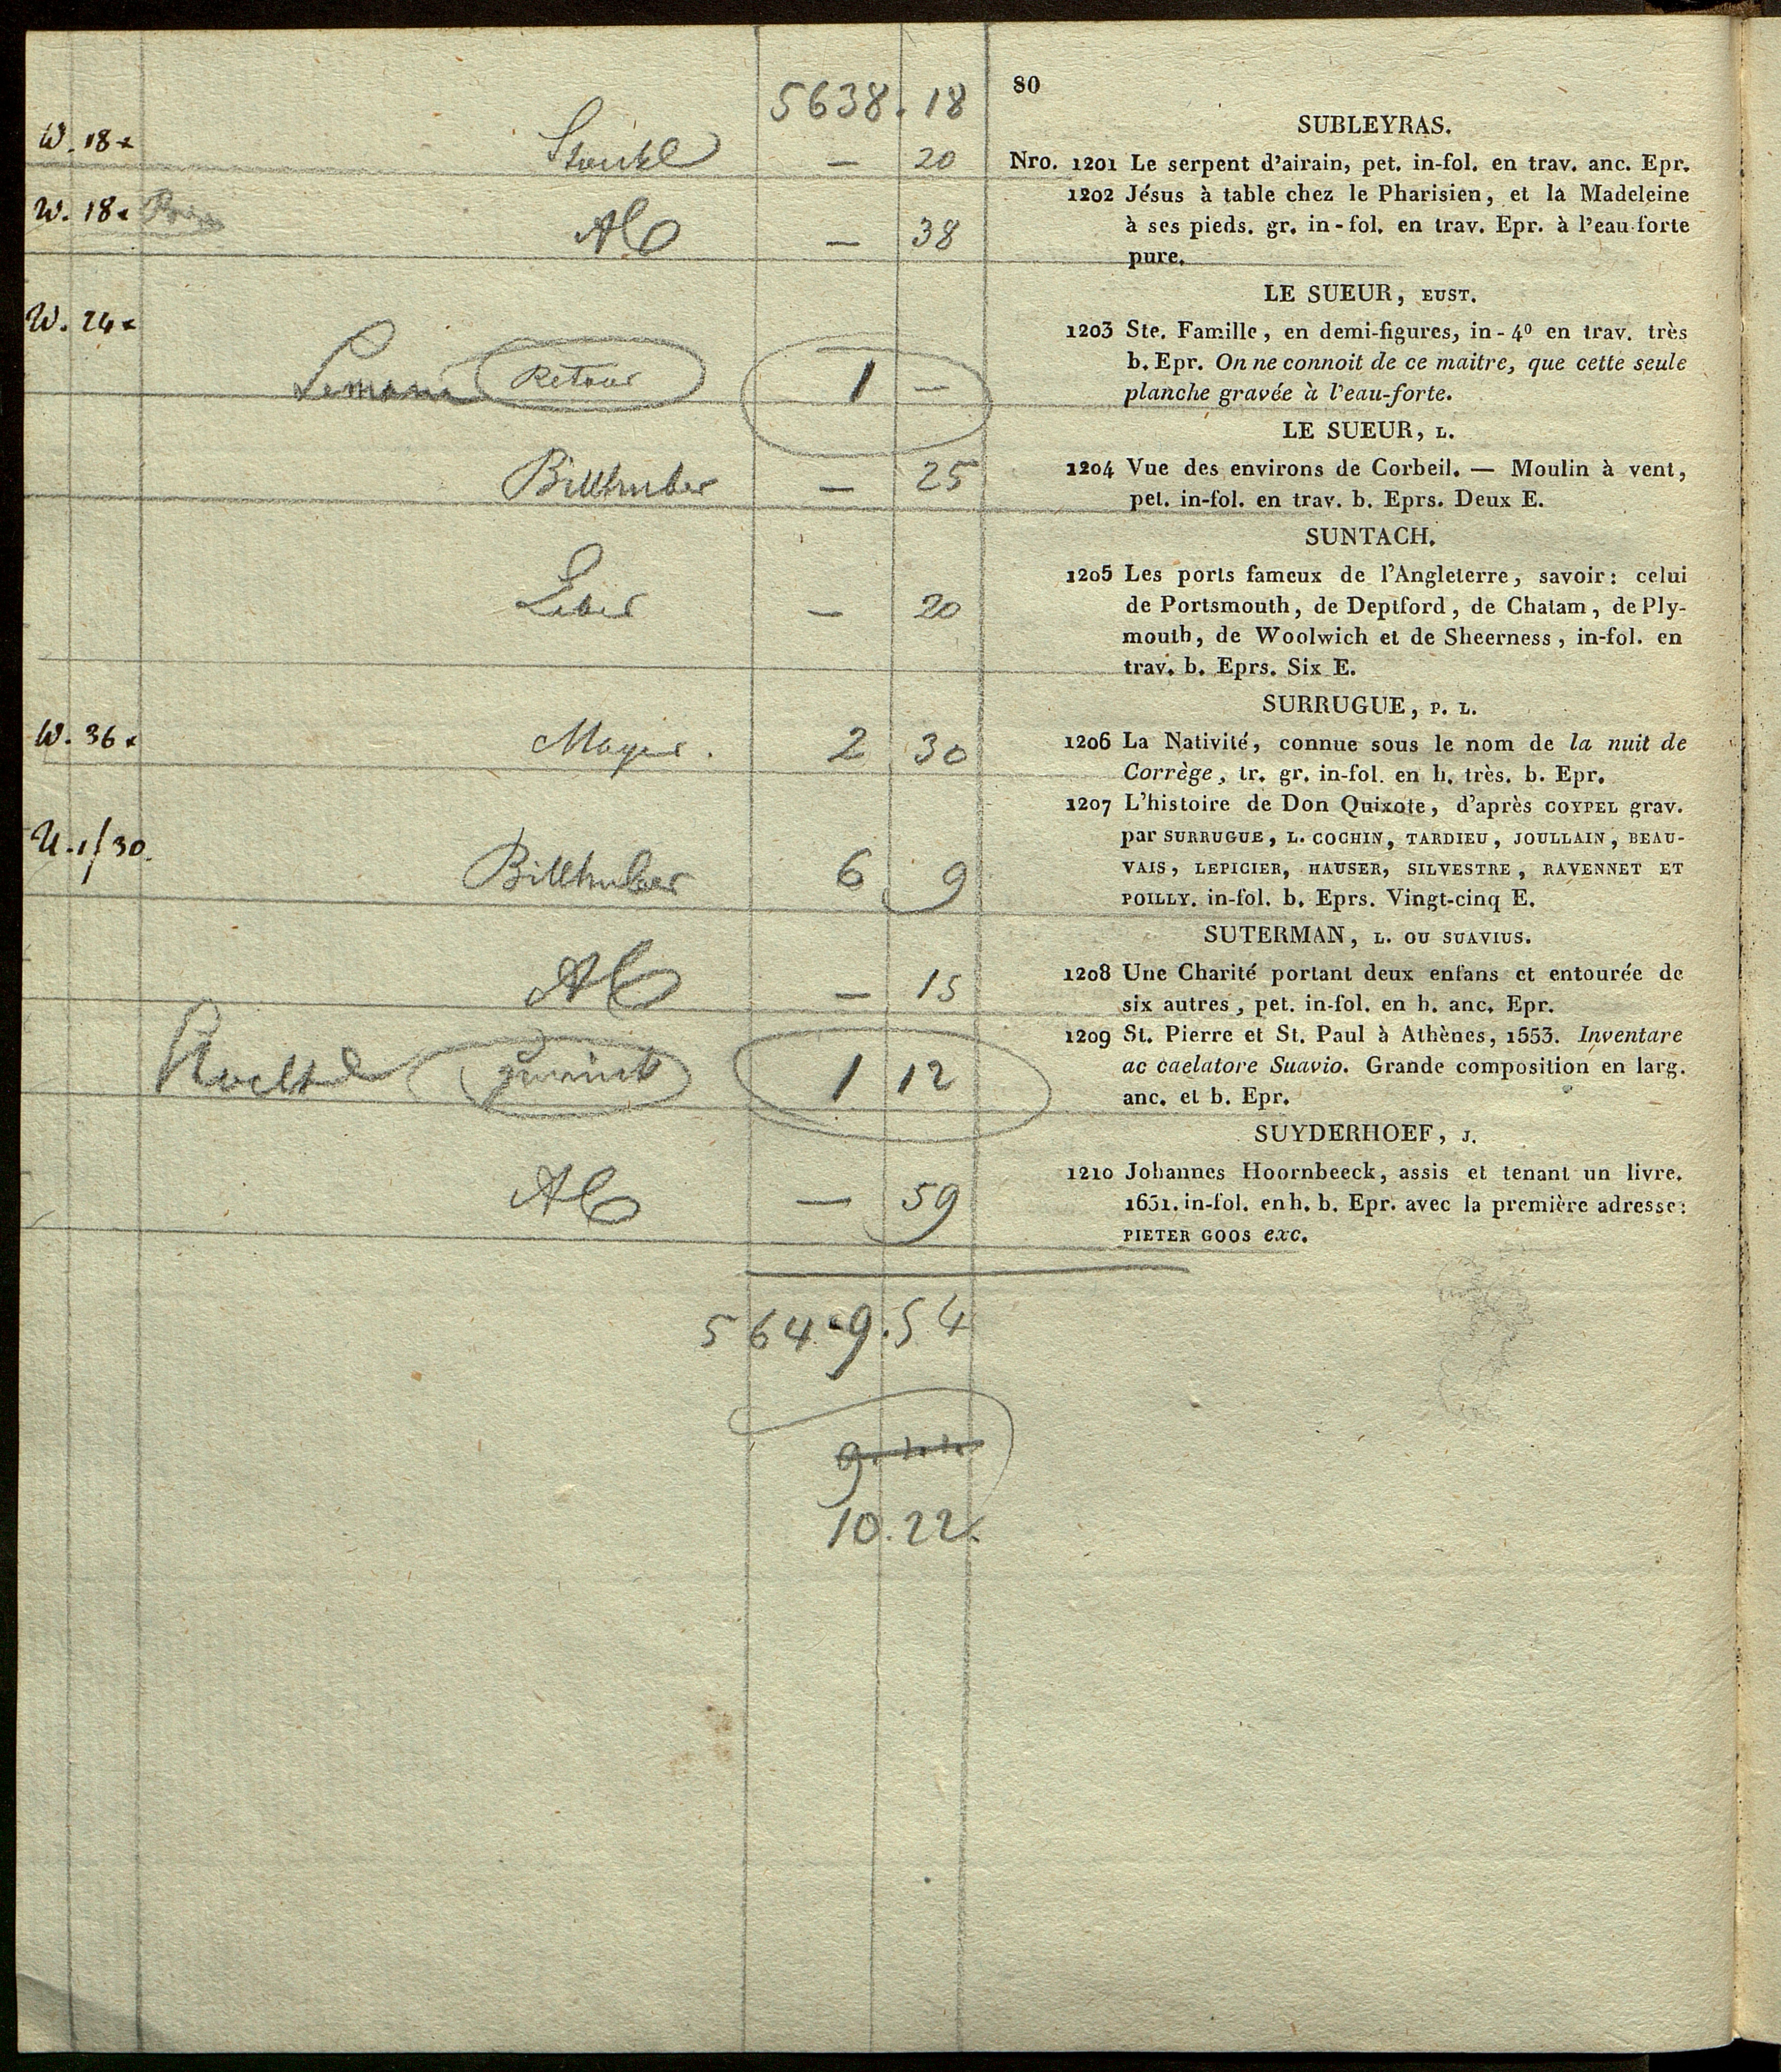 5638. 18
80
SUBLEYRAS.
W. 18x
Stöckl — 20
Nro. 1201 Le serpent d'airain, pet. in-fol. en trav. anc. Epr.
W. 18x
AC — 38
1202 Jésus à table chez le Pharisien, et la Madeleine
à ses pieds. gr. in-fol. en trav. Epr. à l'eau-forte
pure.
LE SUEUR, EUST.
W. 24x
Retour 1 —
1203 Ste. Famille, en demi-figures, in-4º en trav. très
b. Epr. On ne connoit de ce maitre, que cette seule
planche gravée à l'eau-forte.
LE SUEUR, L.
Billhuber — 25
1204 Vue des environs de Corbeil. — Moulin à vent,
pet. in-fol. en trav. b. Eprs. Deux E.
SUNTACH.
— 20
1205 Les ports fameux de l'Angleterre, savoir: celui
de Portsmouth, de Deptford, de Chatam, de Ply-
mouth, de Woolwich et de Sheerness, in-fol. en
trav. b. Eprs. Six E.
SURRUGUE, P. L.
W. 36x
Mayer. 2 30
1206 La Nativité, connue sous le nom de la nuit de
Corrège, tr. gr. in-fol. en h. très. b. Epr.
U. 1/30.
Billhuber 6 9
1207 L'histoire de Don Quixote, d'après COYPEL grav.
par SURRUGUE, L. COCHIN, TARDIEU, JOULLAIN, BEAU-
VAIS, LEPICIER, HAUSER, SILVESTRE, RAVENNET ET
POILLY. in-fol. b. Eprs. Vingt-cinq E.
SUTERMAN, L. OU SUAVIUS.
AC — 15
1208 Une Charité portant deux enfans et entourée de
six autres, pet. in-fol. en h. anc. Epr.
zurück 1 12
1209 St. Pierre et St. Paul à Athènes, 1553. Inventare
ac caelatore Suavio. Grande composition en larg.
anc. et b. Epr.
SUYDERHOEF, J.
AC — 59
1210 Johannes Hoornbeeck, assis et tenant un livre.
1651. in-fol. en h. b. Epr. avec la première adresse:
PIETER GOOS exc.
5649.54
10.22.